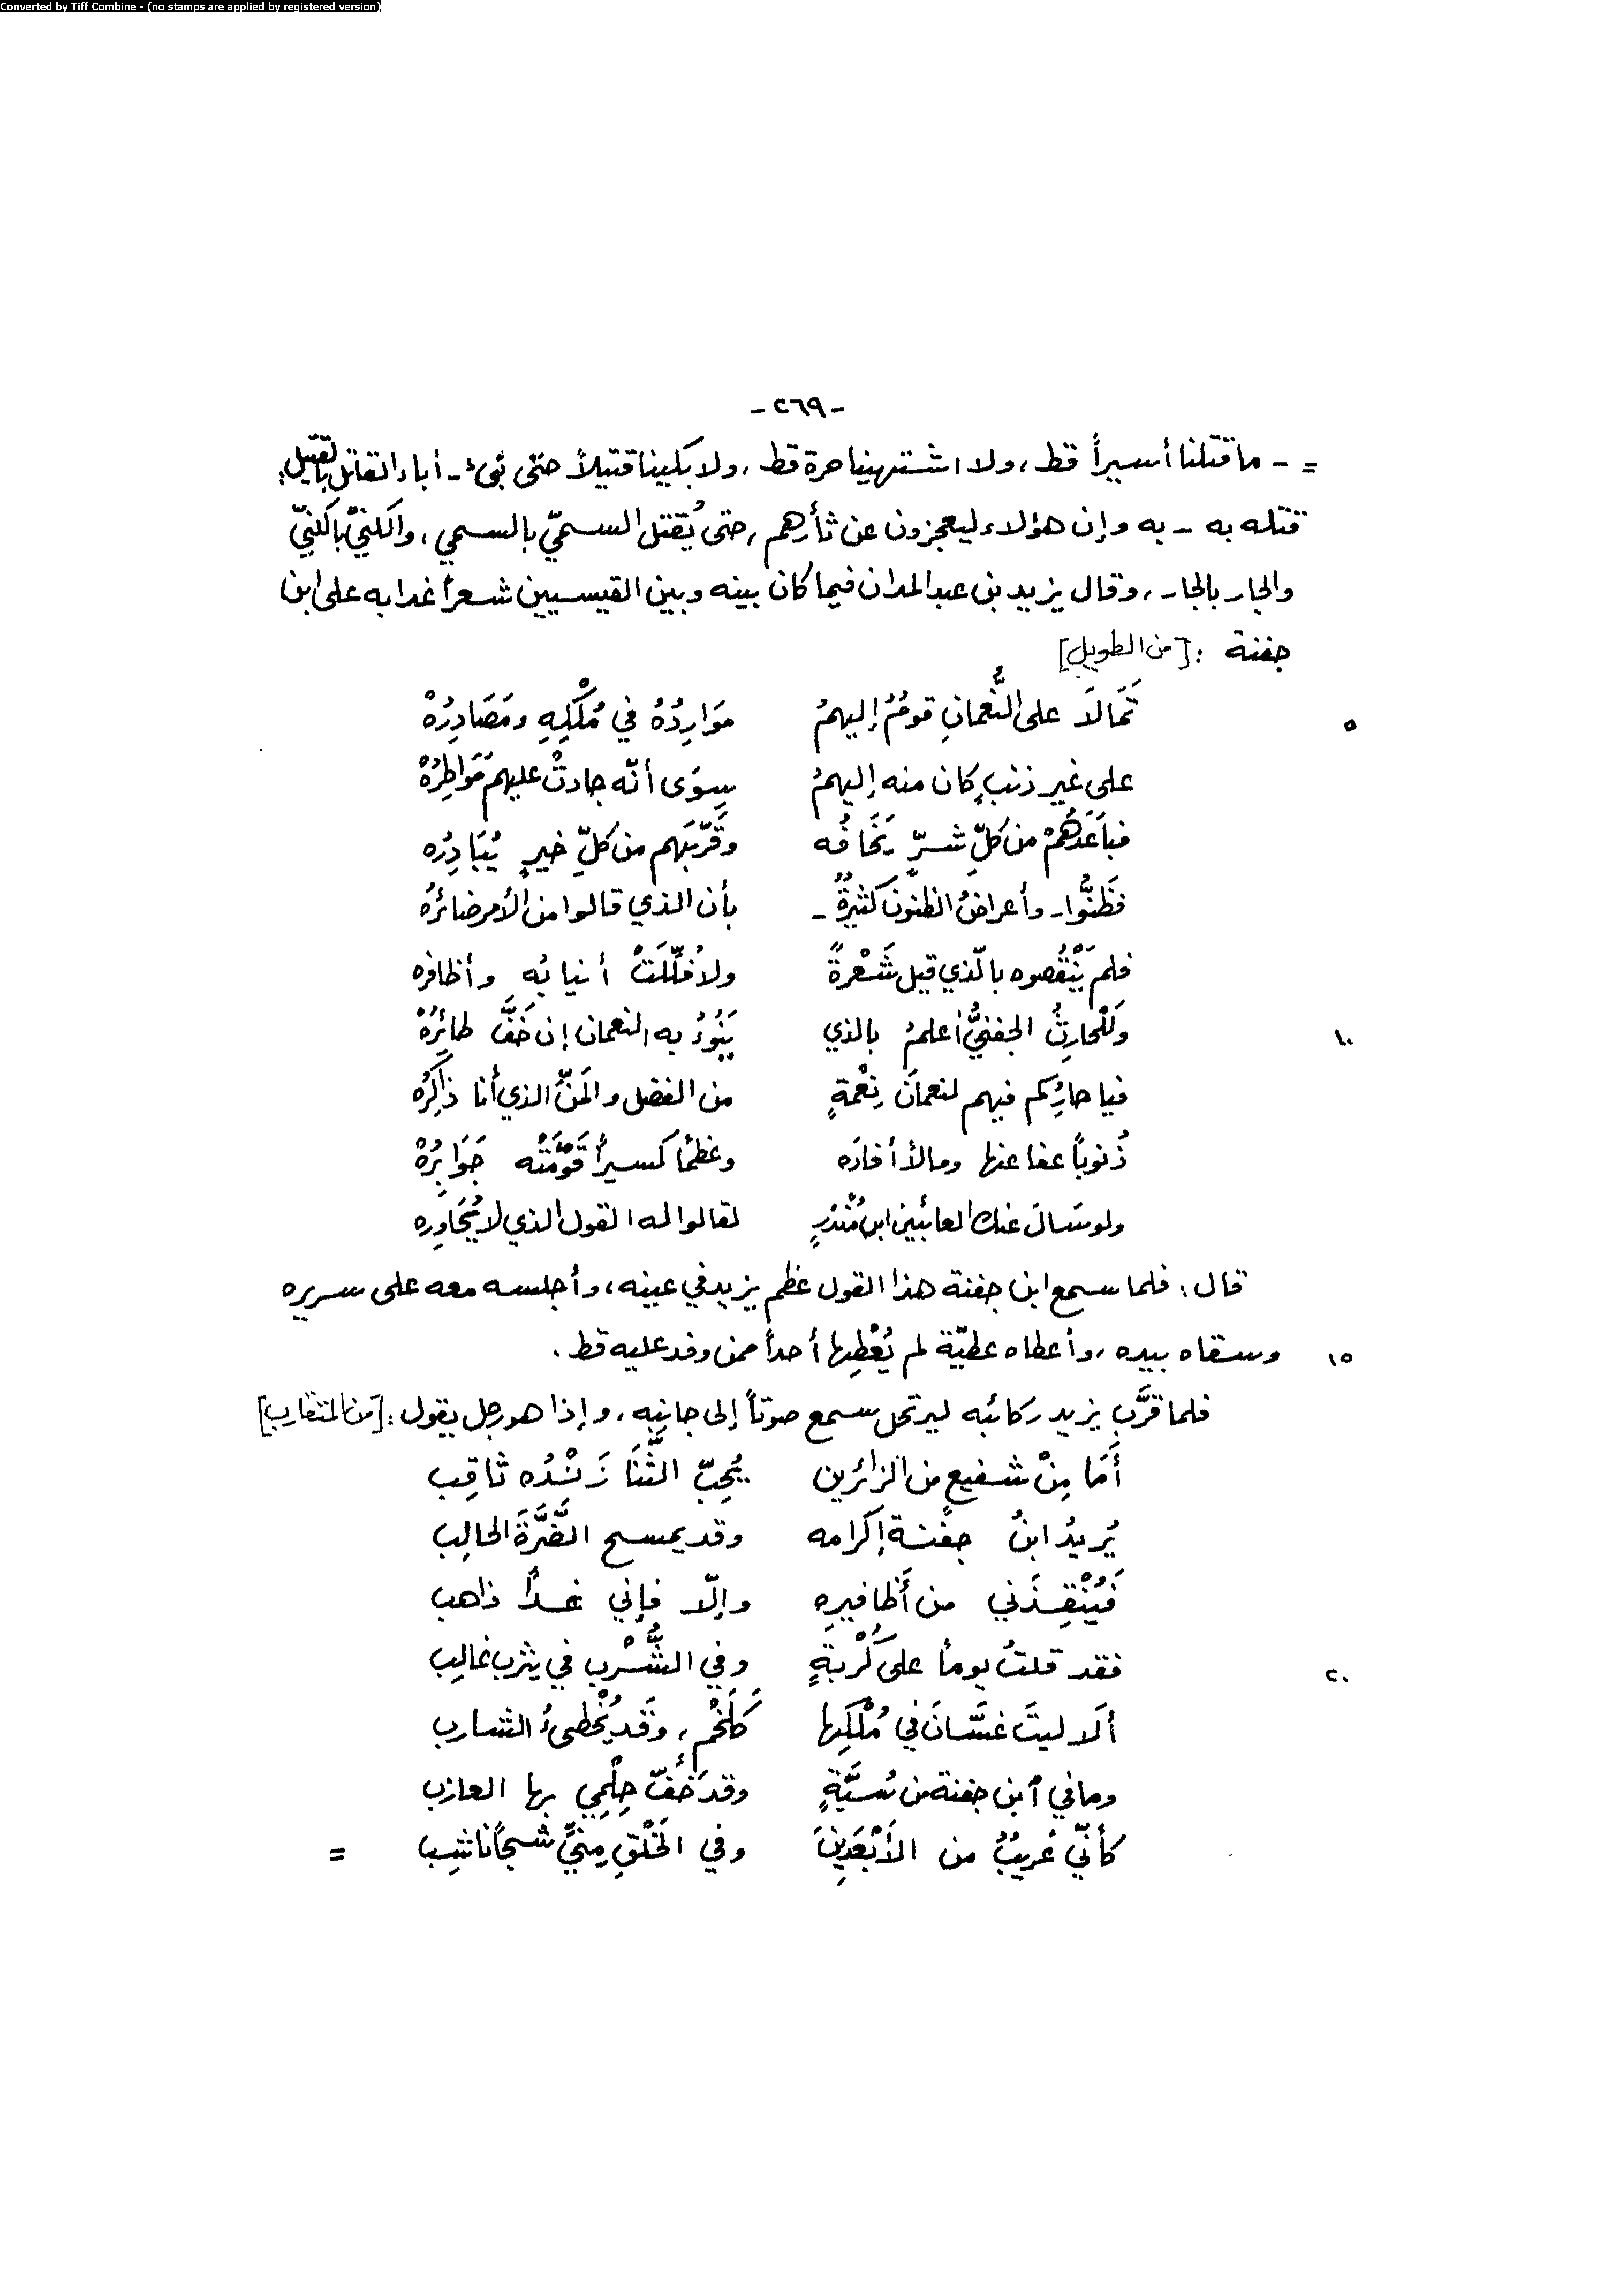 Converted by Tiff Combine - (no stamps are applied by registered version)
-٢٦٩-
= - ما قتلنا أسيراً قط، ولا اشتهينا حرة قط، ولا بكينا قتيلاً حتى نبيء - أباء القاتل بالقتيل:
قتله به - به وإن هؤلاء ليعجزون عن ثأرهم، حتى يُقتل السميّ بالسمي، والكنيّ بالكنيّ
والجار بالجار، وقال يزيد بن عبد المدان فيما كان بينه وبين القيسيين شعراً غدا به على ابن
جفنة : [من الطويل]
تَمَالَا على النُّعمانِ قومٌ إليهمُ مَوَارِدُهُ في مُلْكِهِ ومَصَادِرُهْ ٥
على غير ذنبٍ كان منه إليهمُ سِوَى أنّه جادتْ عليهم مَوَاطِرُهْ
فباعَدَهُمْ من كلِّ شرٍّ يَخَافُه وقَرَّبَهم من كلِّ خيرٍ يُبَادِرُه
فظَنُّوا - وأعراضُ الظنون كثيرةٌ - بأن الذي قالوا من الأمر ضائرُهْ
فلم يَنْقُصوه بالّذي قيل شَعْرةً ولا فُلِّلَتْ أنيابُه وأظافره
ولَلْحارِثُ الجفنيُّ أعلمُ بالذي يَنُوءُ به النعمان إن خَفَّ طائرُهْ ١٠
فيا حارِ كم فيهم لنعمانَ نِعْمةٍ من الفضل والمَنِّ الذي أنا ذاكِرُهْ
ذُنوباً عفا عنها ومالاً أفادَه وعظماً كسيراً قَوَّمَتْه جَوَابِرُهْ
ولو سَالَ عنك العائبين ابن مُنْذرٍ لقالوا له القول الذي لا يُحَاوِره
قال : فلما سمع ابن جفنة هذا القول عظم يزيد في عينه، وأجلسه معه على سريره
وسقاه بيده، وأعطاه عطيّة لم يُعْطِها أحداً ممن وفد عليه قط. ١٥
فلما قرَّب يزيد ركائبه ليرتحل سمع صوتاً إلى جانبه، وإذا هو رجل يقول : [من المتقارب]
أَمَا مِنْ شفيعٍ من الزائرين يُحِبّ الثَّنَا زَنْدُه ثاقِب
يُريدُ ابنُ جفنة إكرامه وقد يمسح الضَّرَّةَ الحالِب
فَيُنْقِذَني من أظافيرِه وإلّا فإني غداً ذاهب
فقد قلتُ يوماً على كُرْبةٍ وفي الشَّرْبِ في يثرب غالِب ٢٠
ألَا ليتَ غسَّانَ في مُلْكِها كَلَخْمٍ، وقَد يُخْطيءُ الشارب
وما في ابن جفنة من سُبَّةٍ وقد خَفّ حِلْمِي بها العازب
كأنّي غريبٌ من الأبْعَدِينَ وفي الحَلْقِ مِنِّي شجاً ناشِب =